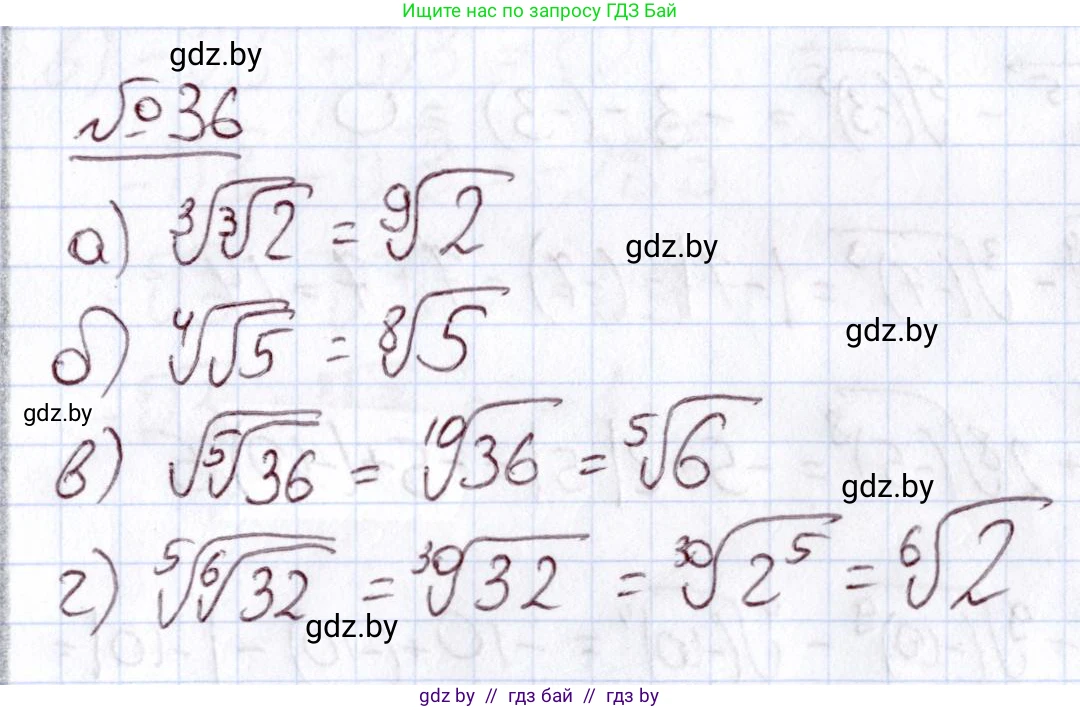 Ищите нас по запросу ГДЗ Бай
gdz.by
№ 36
а) ∛(∛2) = ⁹√2
gdz.by
б) ⁴√(√5) = ⁸√5
gdz.by
gdz.by
в) √(⁵√36) = ¹⁰√36 = ⁵√6
gdz.by
г) ⁵√(⁶√32) = ³⁰√32 = ³⁰√2⁵ = ⁶√2
gdz.by
gdz by // гдз бай // гдз by